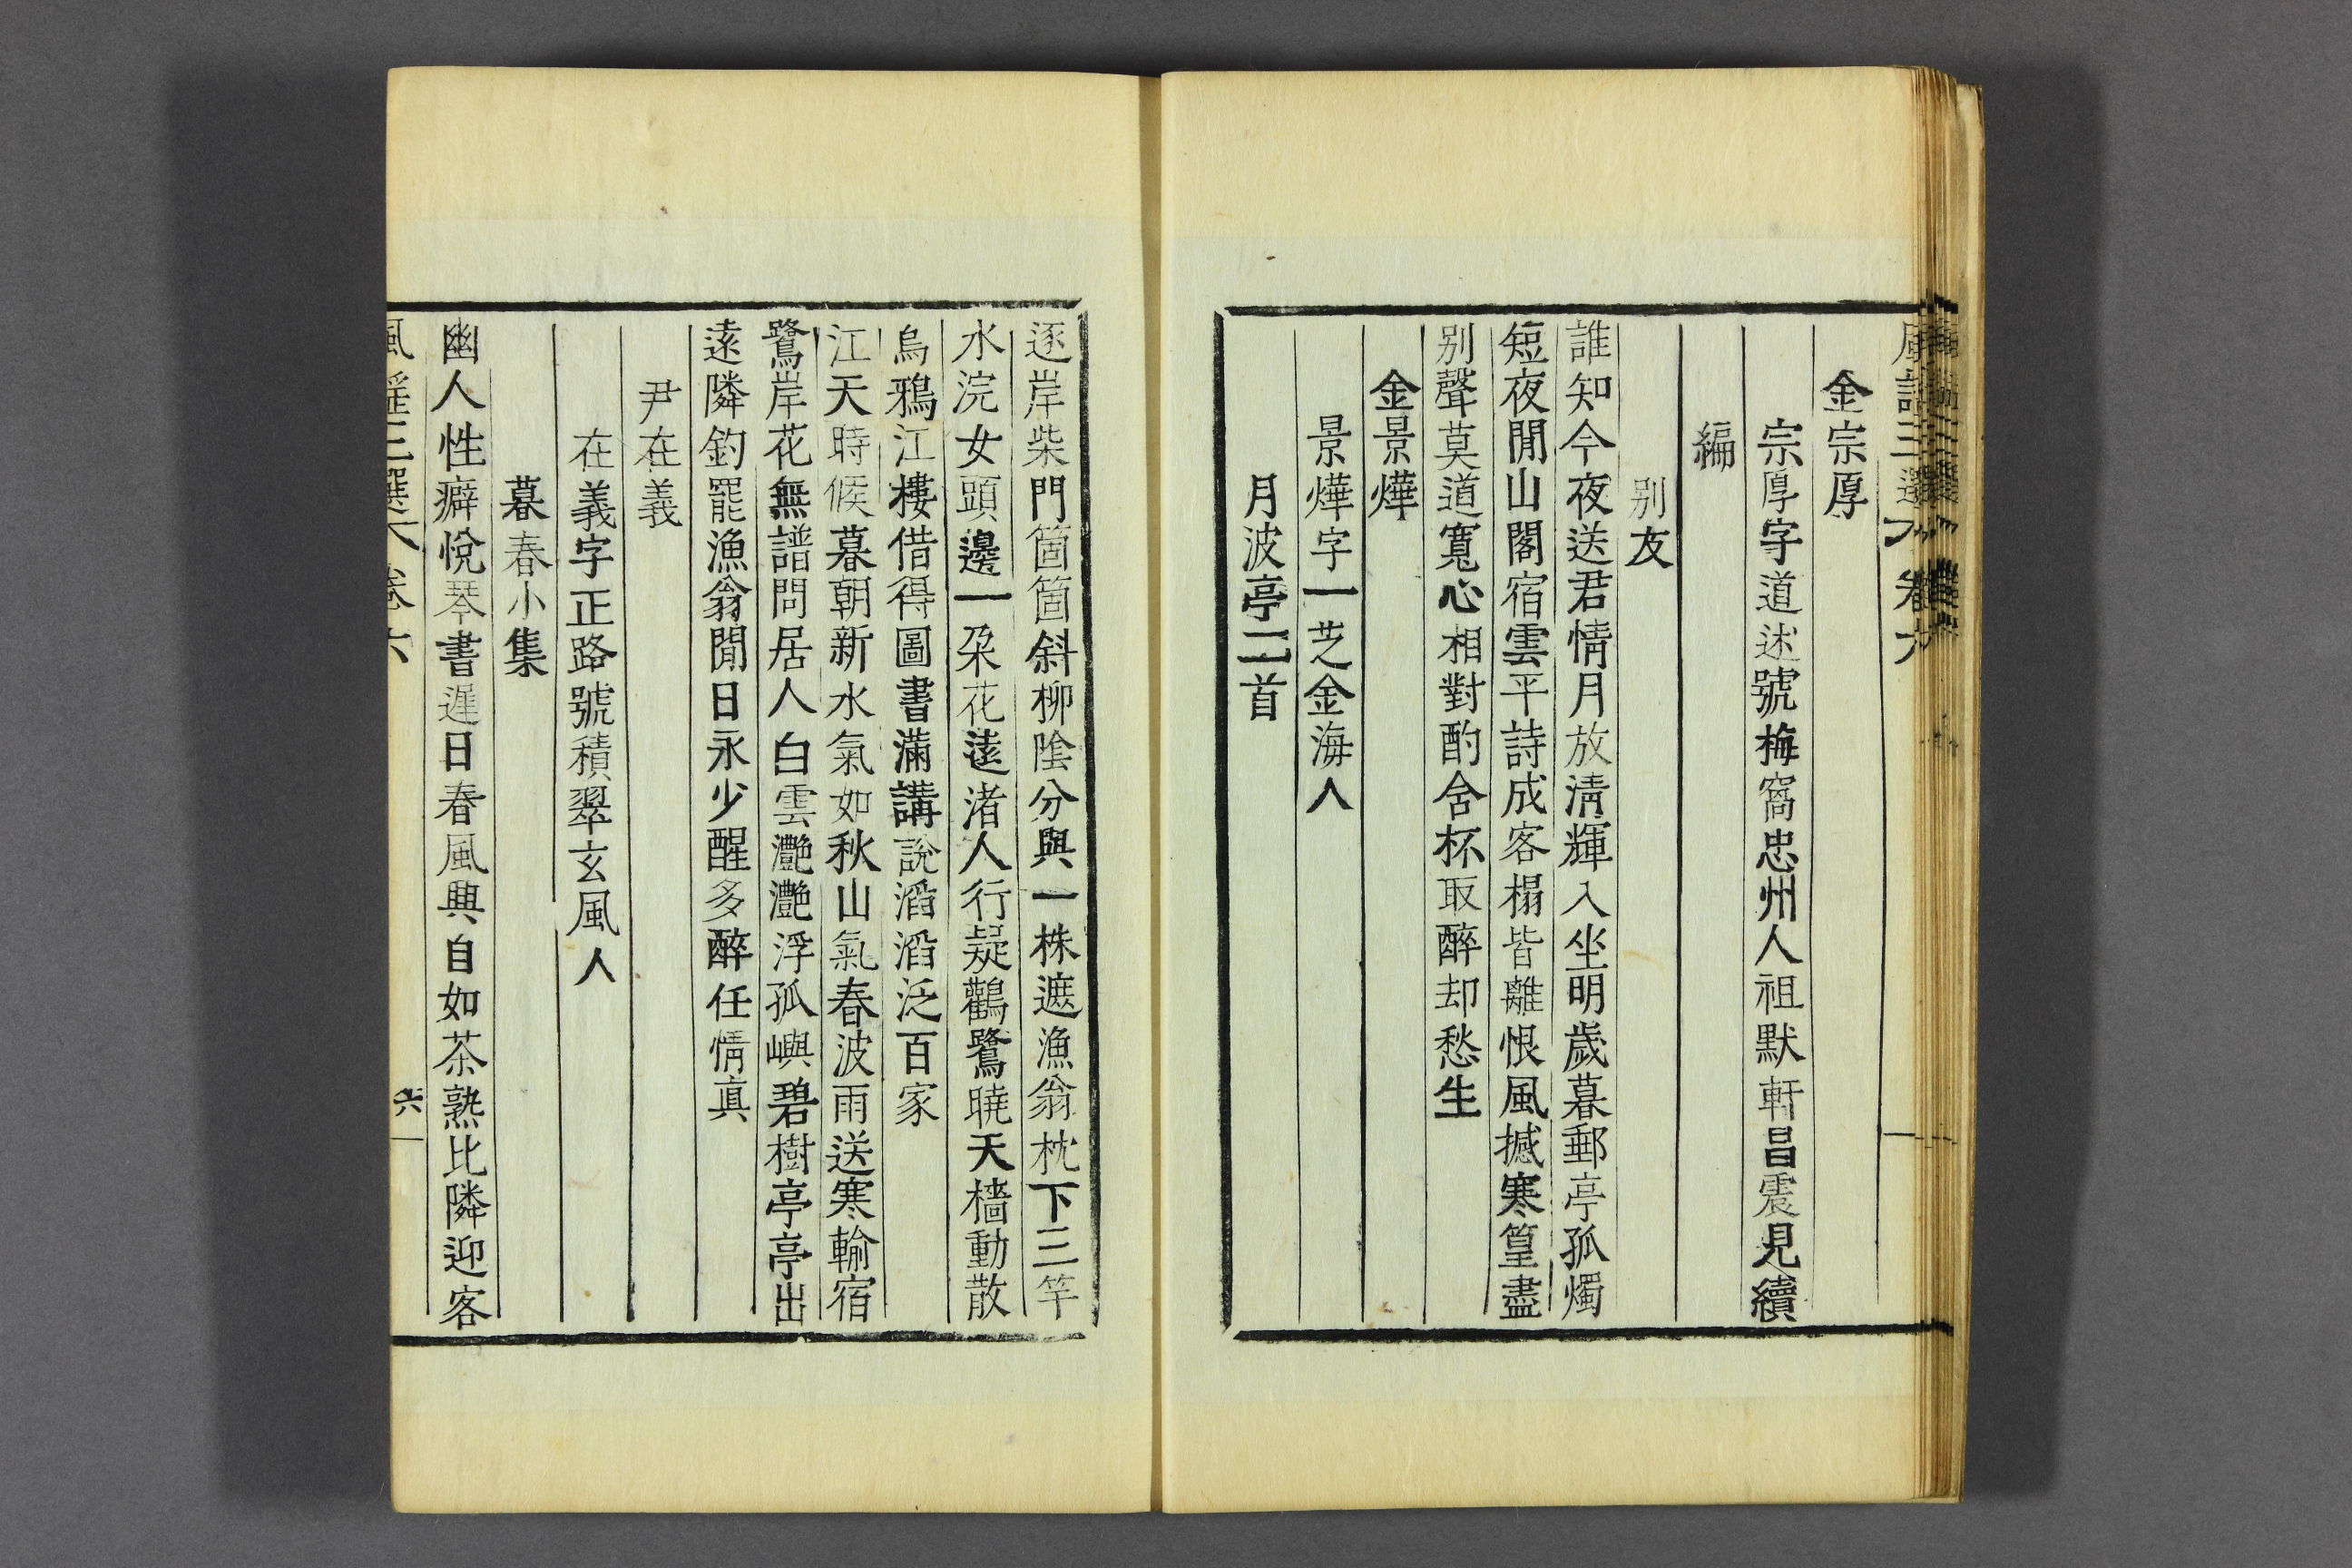 風謠三選 卷六
金宗厚
宗厚字道述號梅窩忠州人祖默軒昌震見續
編
別友
誰知今夜送君情月放清輝入坐明歲暮郵亭孤燭
短夜閒山閣宿雲平詩成客榻皆離恨風撼寒篁盡
別聲莫道寬心相對酌含杯取醉却愁生
金景燁
景燁字一芝金海人
月波亭二首
逐岸柴門箇箇斜柳陰分與一株遮漁翁枕下三竿
水浣女頭邊一朶花遠渚人行疑鸛鷺曉天檣動散
烏鴉江樓借得圖書滿講說滔滔泛百家
江天時候暮朝新水氣如秋山氣春波雨送寒輸宿
鷺岸花無譜問居人白雲灔灔浮孤嶼碧樹亭亭出
遠隣釣罷漁翁閒日永少醒多醉任情眞
尹在義
在義字正路號積翠玄風人
暮春小集
幽人性癖悅琴書遲日春風興自如茶熟比隣迎客
風謠三選 卷六
六